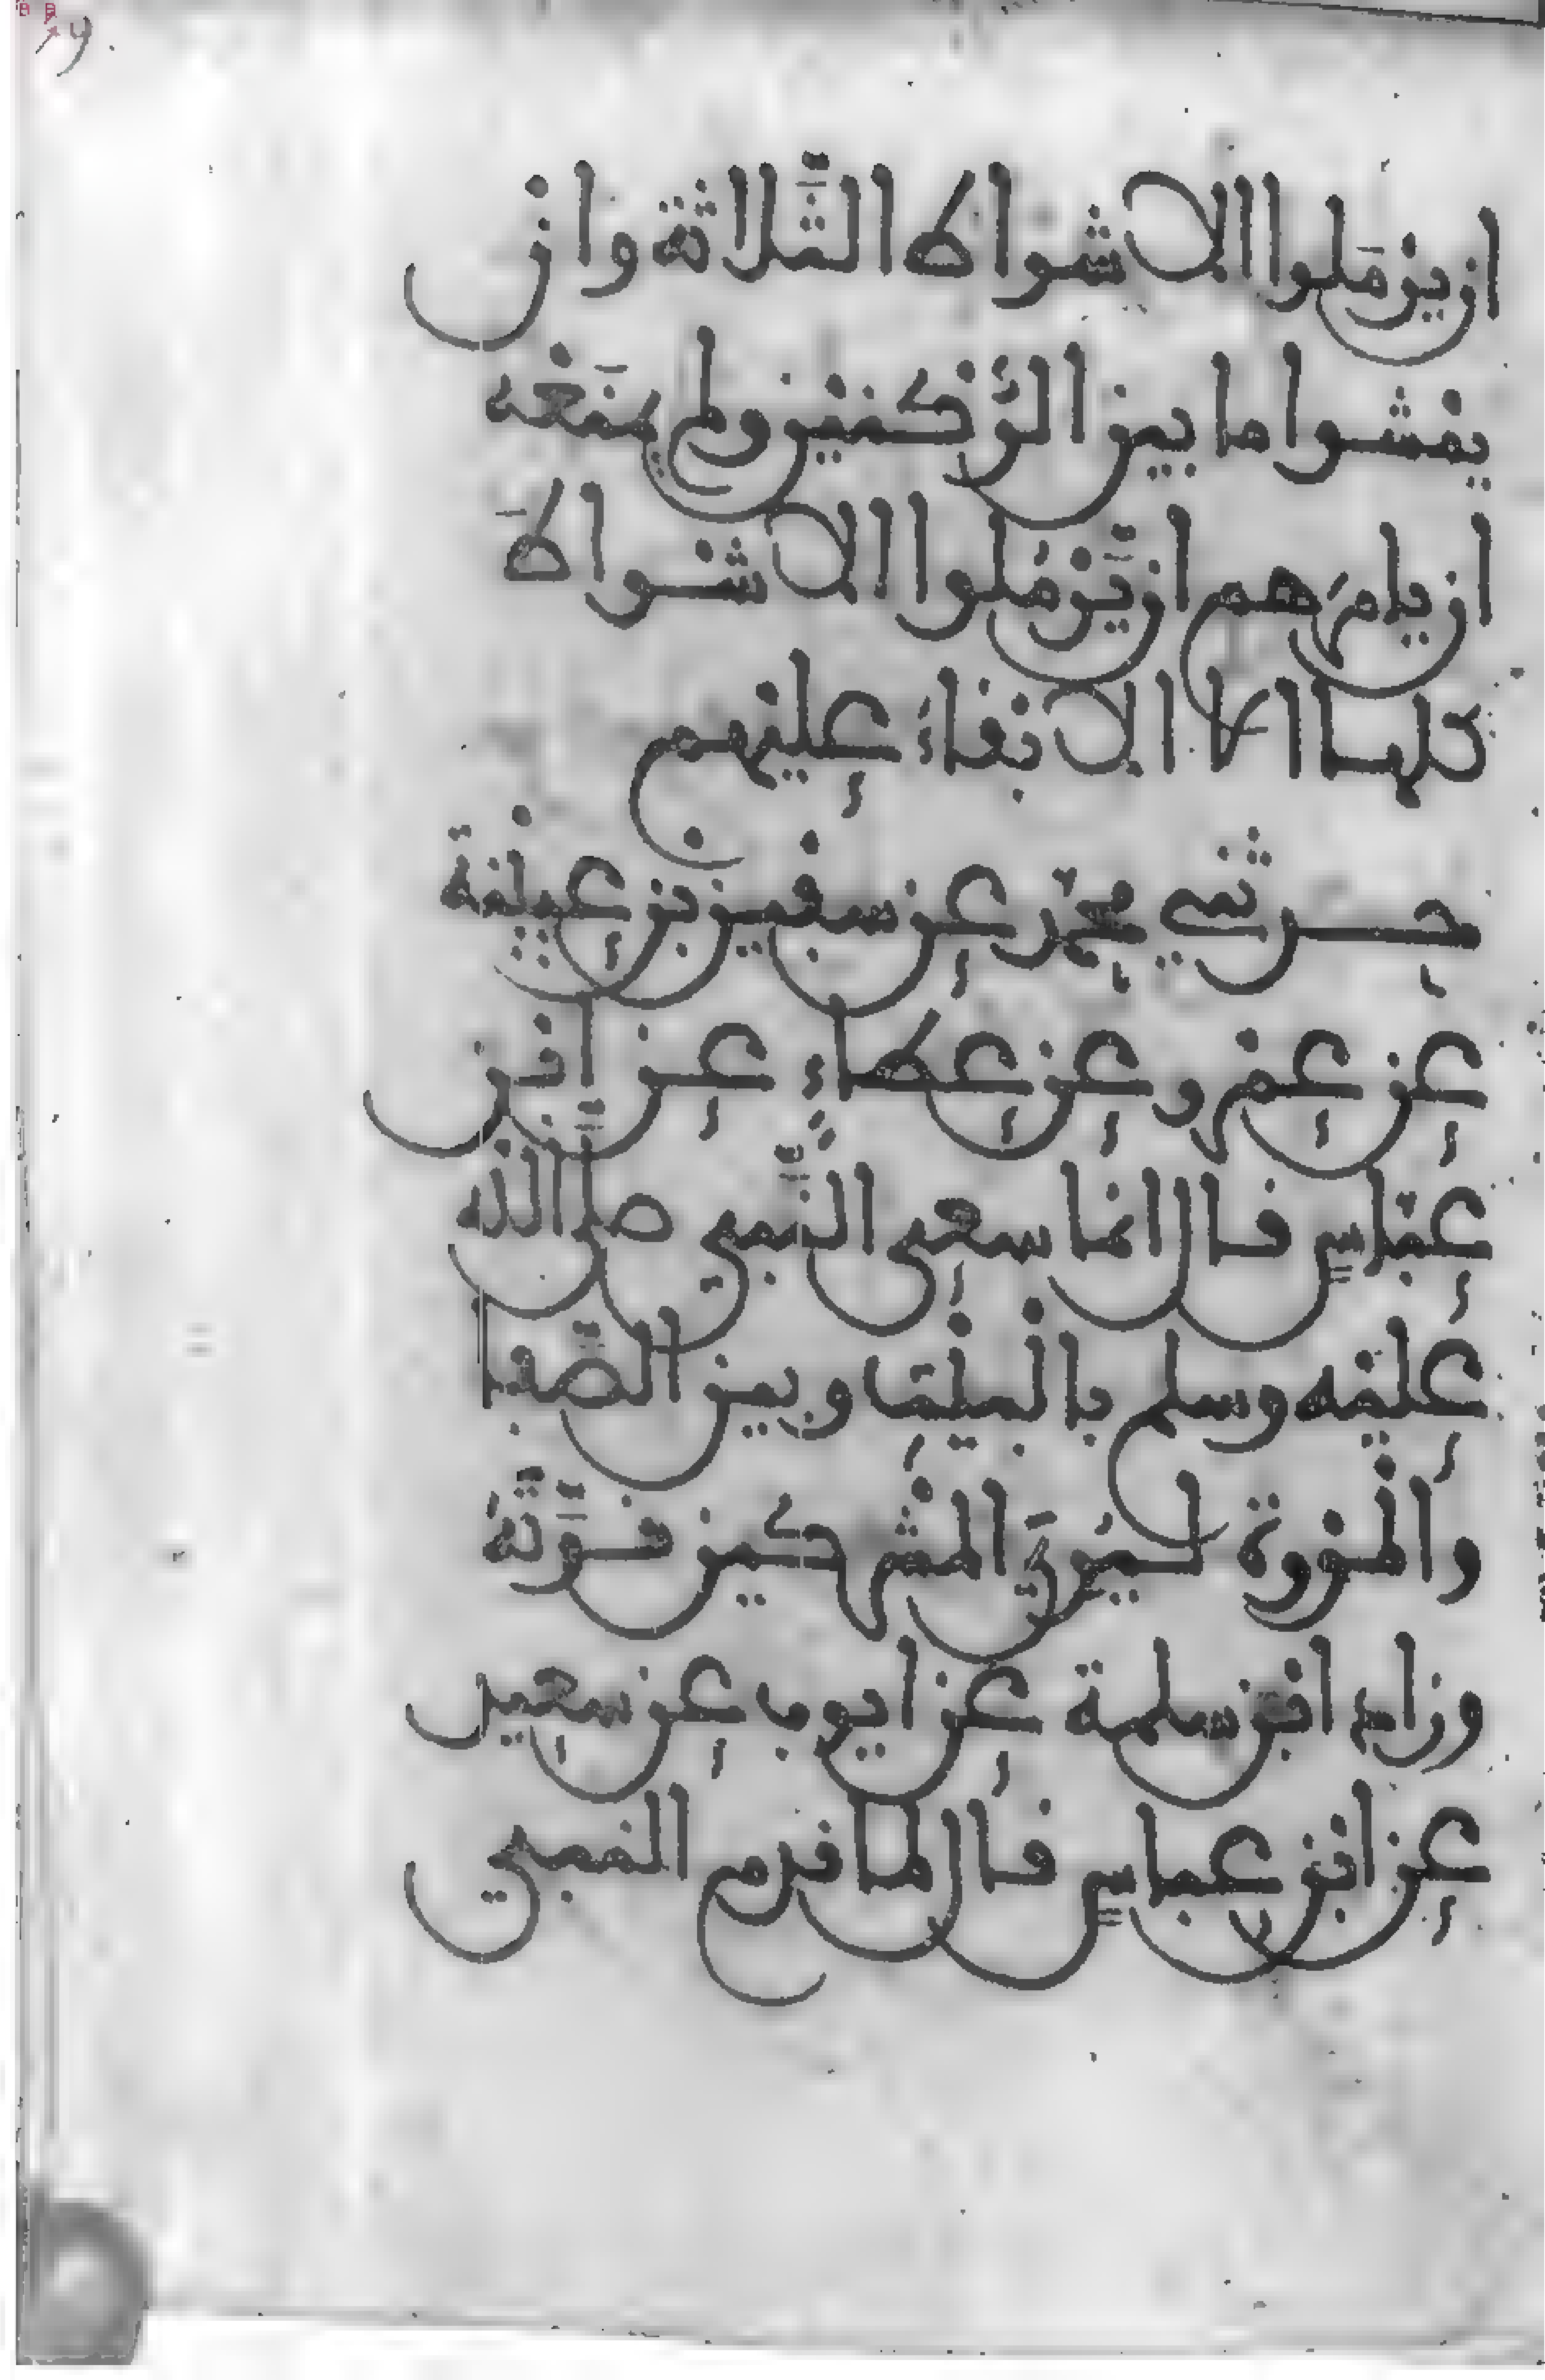 ان يرملوا الاشواط الثلاثة وان
يمشوا ما بين الركنين ولم يمنعه
ان يامرهم ان يرملوا الاشواط
كلها الا الابقاء عليهم
حدثني محمد عن سفين بن عيينة
عن عمرو عن عطاء عن ابن
عباس قال انما سعى النبي صلى الله
عليه وسلم بالبيت وبين الصفا
والمروة ليري المشركين قوته
وزاد ابن سلمة عن ايوب عن سعيد
عن ابن عباس قال لما قدم النبي